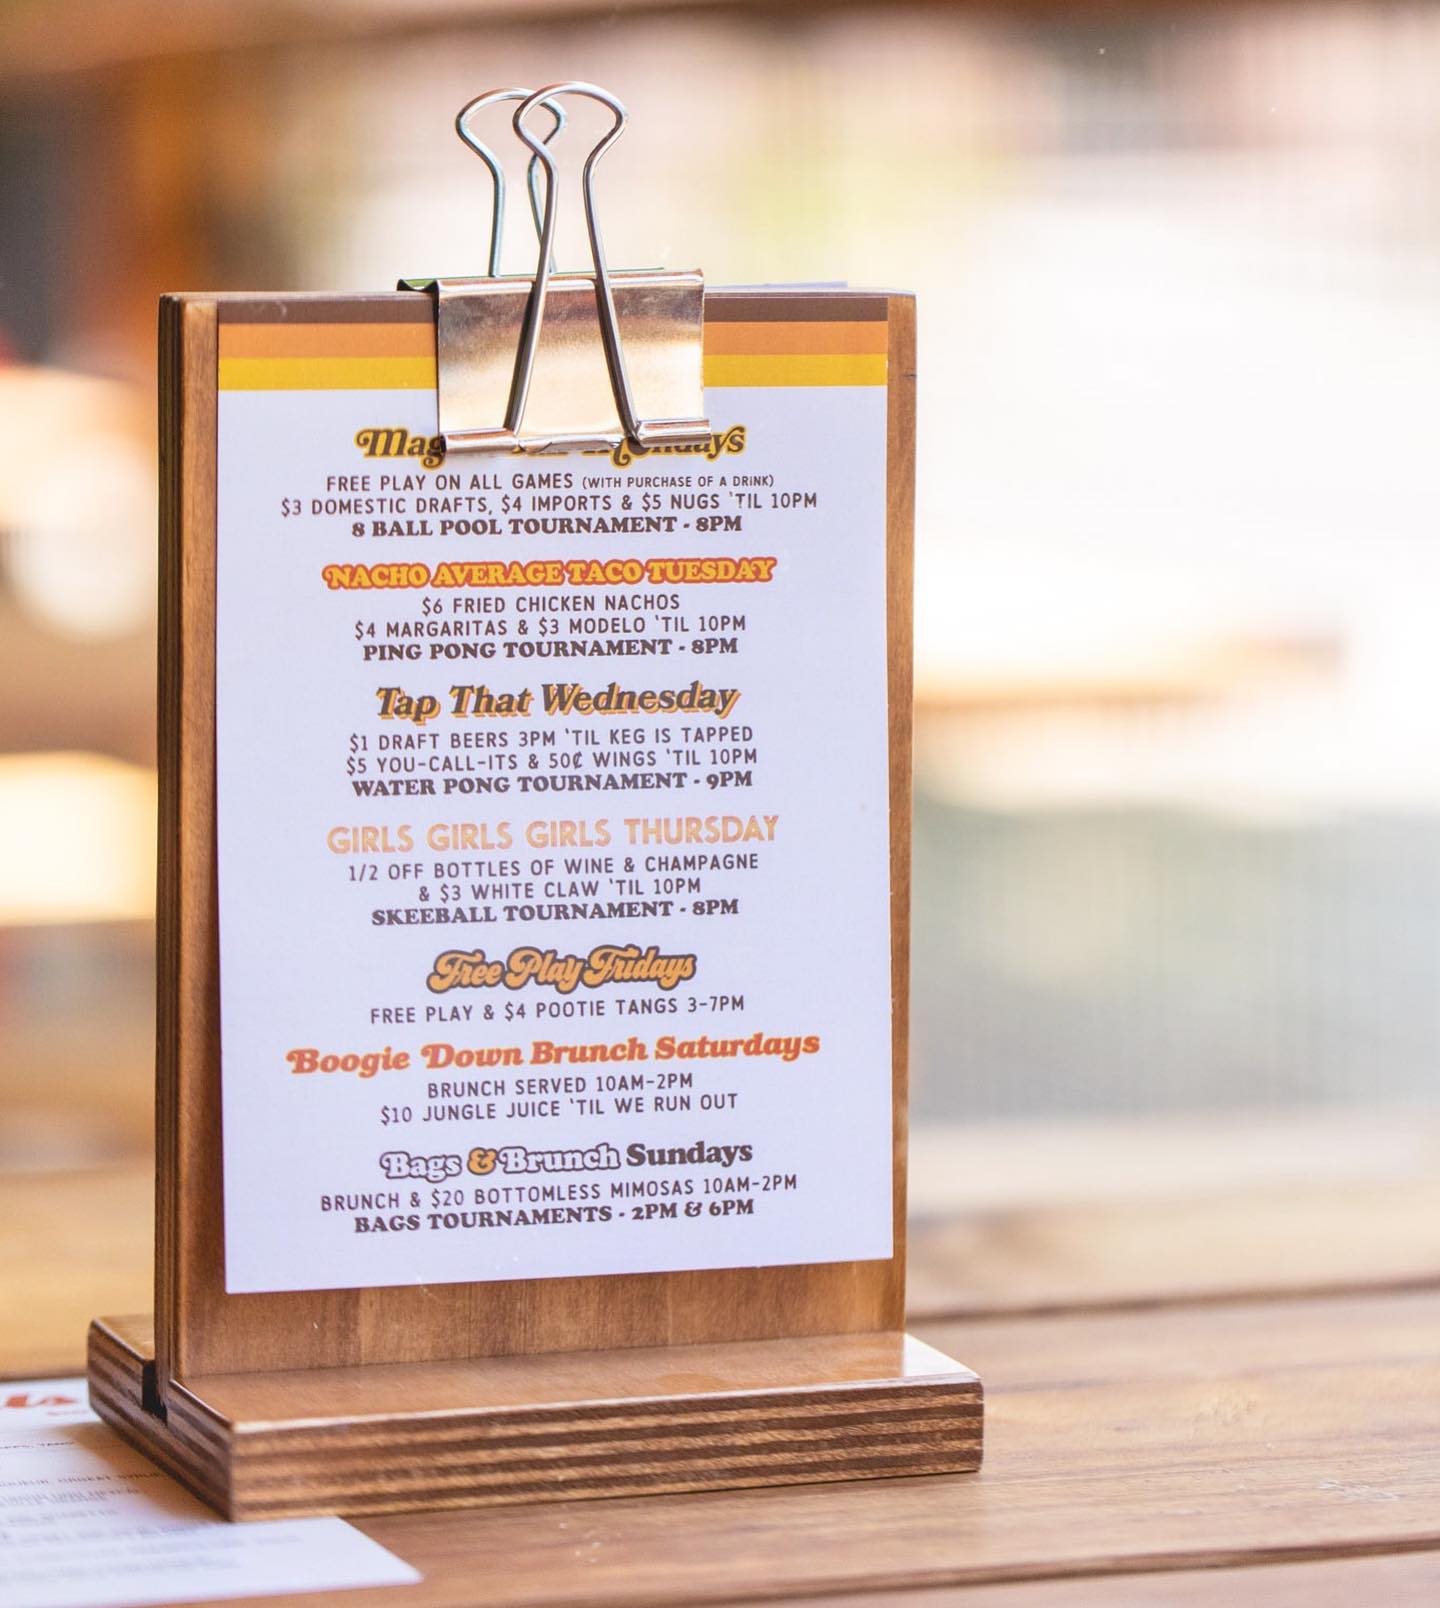 FREE PLAY ON ALL GAMES (WITH PURCHASE OF A DRINK)
$3 DOMESTIC DRAFTS, $4 IMPORTS & $5 NUGS 'TIL 10PM
8 BALL POOL TOURNAMENT - 8PM
NACHO AVERAGE TACO TUESDAY
$6 FRIED CHICKEN NACHOS
$4 MARGARITAS & $3 MODELO 'TIL 10PM
PING PONG TOURNAMENT - 8PM
Tap That Wednesday
$1 DRAFT BEERS 3PM 'TIL KEG IS TAPPED
$5 YOU-CALL-ITS & 50¢ WINGS 'TIL 10PM
WATER PONG TOURNAMENT - 9PM
GIRLS GIRLS GIRLS THURSDAY
1/2 OFF BOTTLES OF WINE & CHAMPAGNE
& $3 WHITE CLAW 'TIL 10PM
SKEEBALL TOURNAMENT - 8PM
Free Play Fridays
FREE PLAY & $4 POOTIE TANGS 3-7PM
Boogie Down Brunch Saturdays
BRUNCH SERVED 10AM-2PM
$10 JUNGLE JUICE 'TIL WE RUN OUT
Bags & Brunch Sundays
BRUNCH & $20 BOTTOMLESS MIMOSAS 10AM-2PM
BAGS TOURNAMENTS - 2PM & 6PM